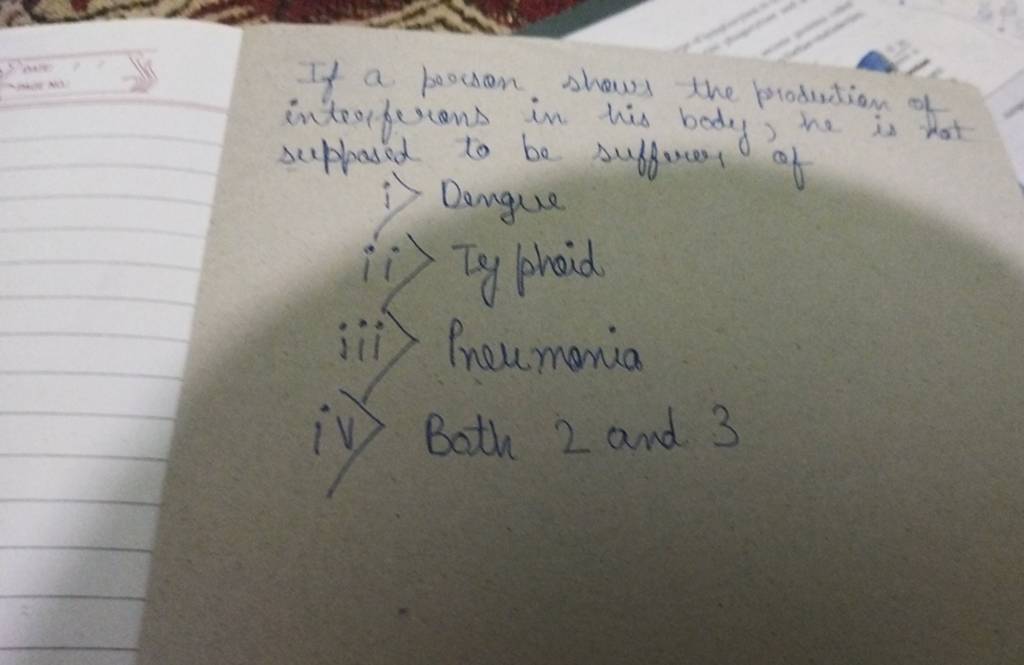 DATE
PAGE NO.
If a person shows the production of
interferons in his body, he is not
supposed to be sufferer of
i> Dengue
ii> Typhoid
iii> Pneumonia
iv> Both 2 and 3